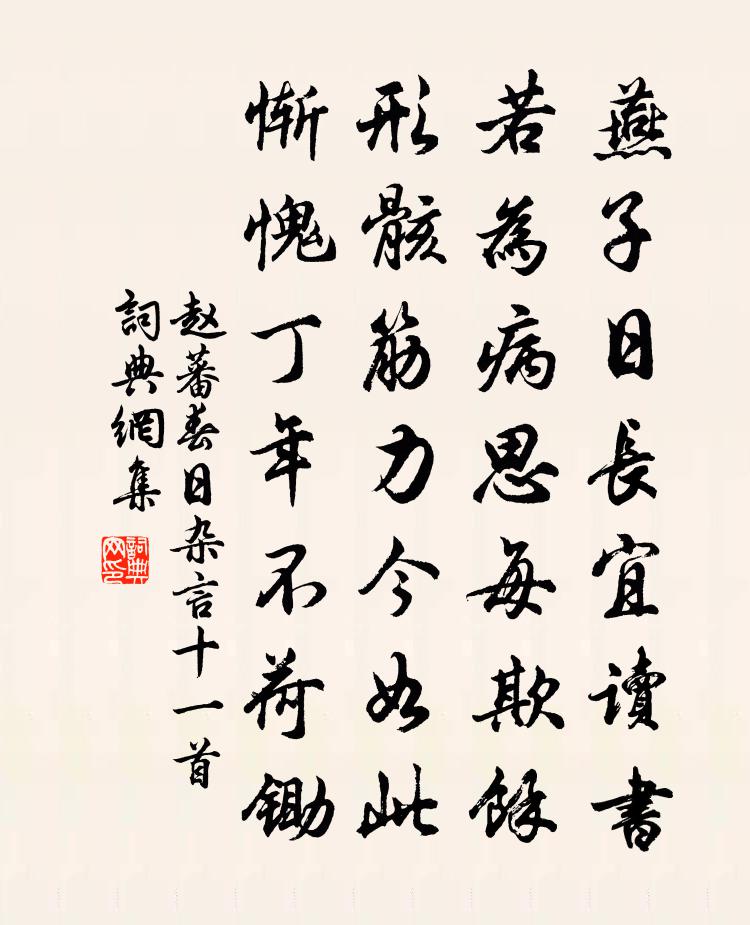 燕子日長宜讀書
若為病思每欺餘
形骸筋力今如此
慚愧丁年不荷鋤
赵蕃春日杂言十一首
詞典網集
詞典网印